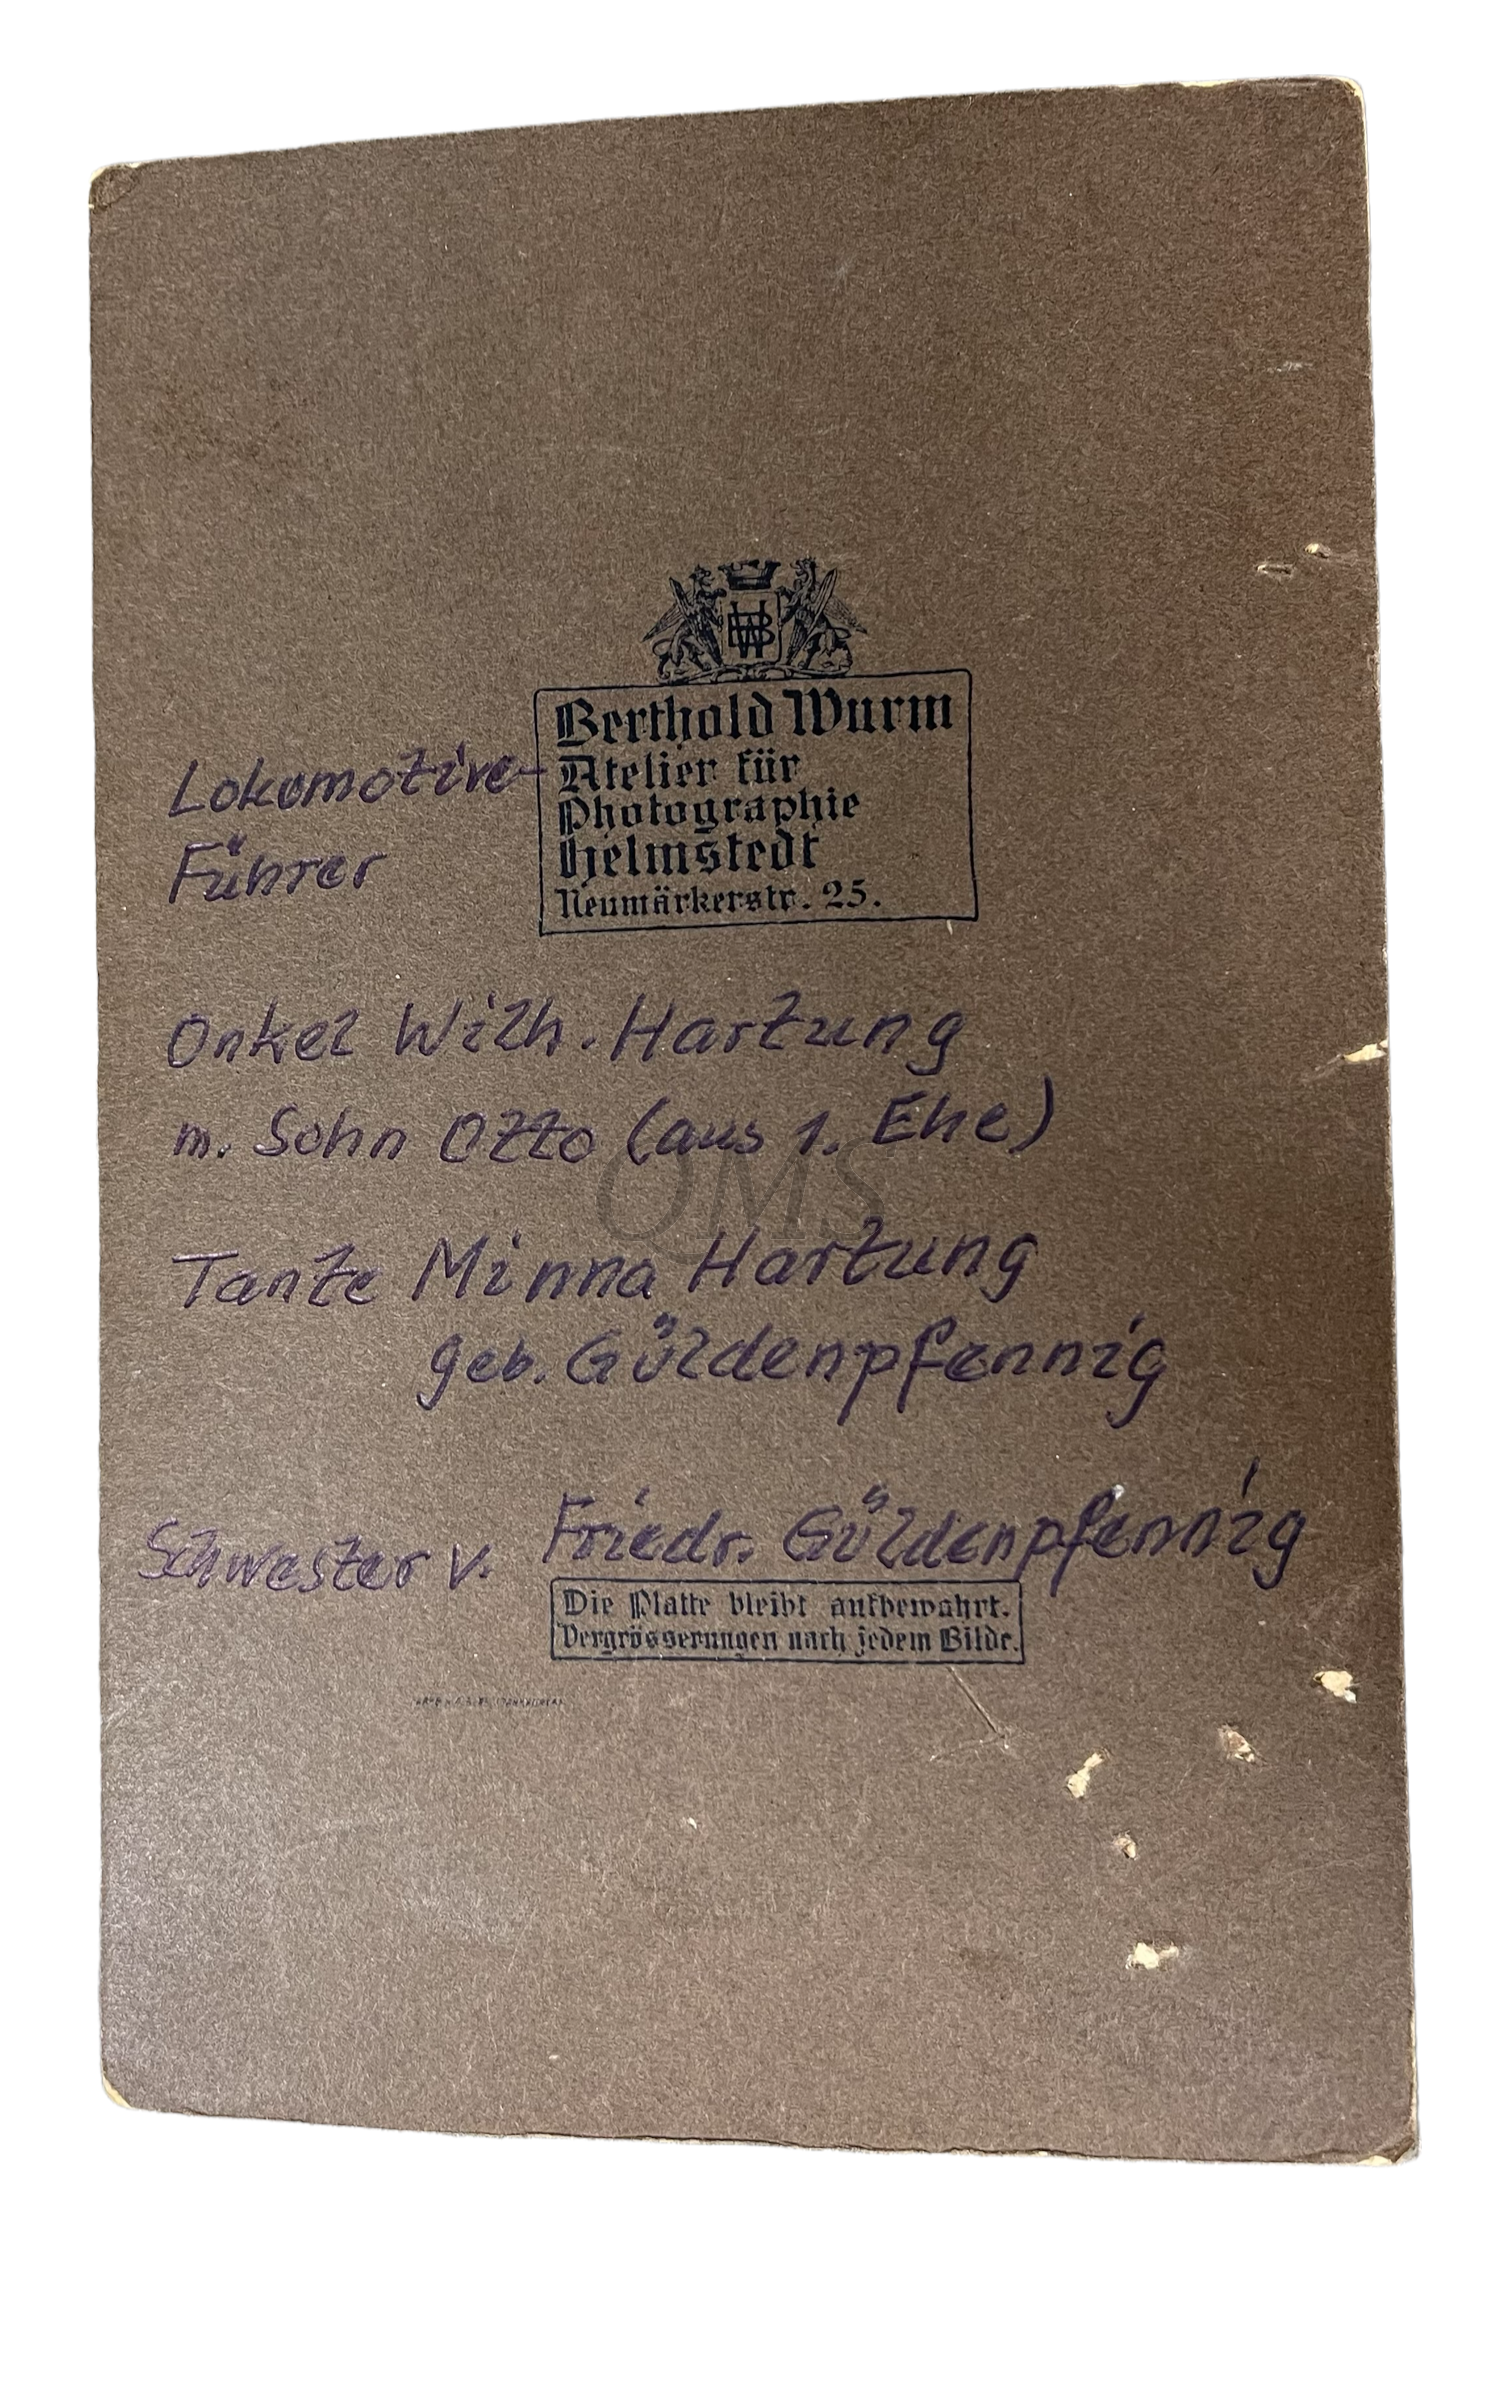 BW
Berthold Wurm
Atelier für
Photographie
Helmstedt
Neumärkerstr. 25.
Lokomotive-
Führer
Onkel Wilh. Hartung
m. Sohn Otto (aus 1. Ehe)
QMS
Tante Minna Hartung
geb. Güldenpfennig
Schwester v. Friedr. Güldenpfennig
Die Platte bleibt aufbewahrt.
Vergrösserungen nach jedem Bilde.